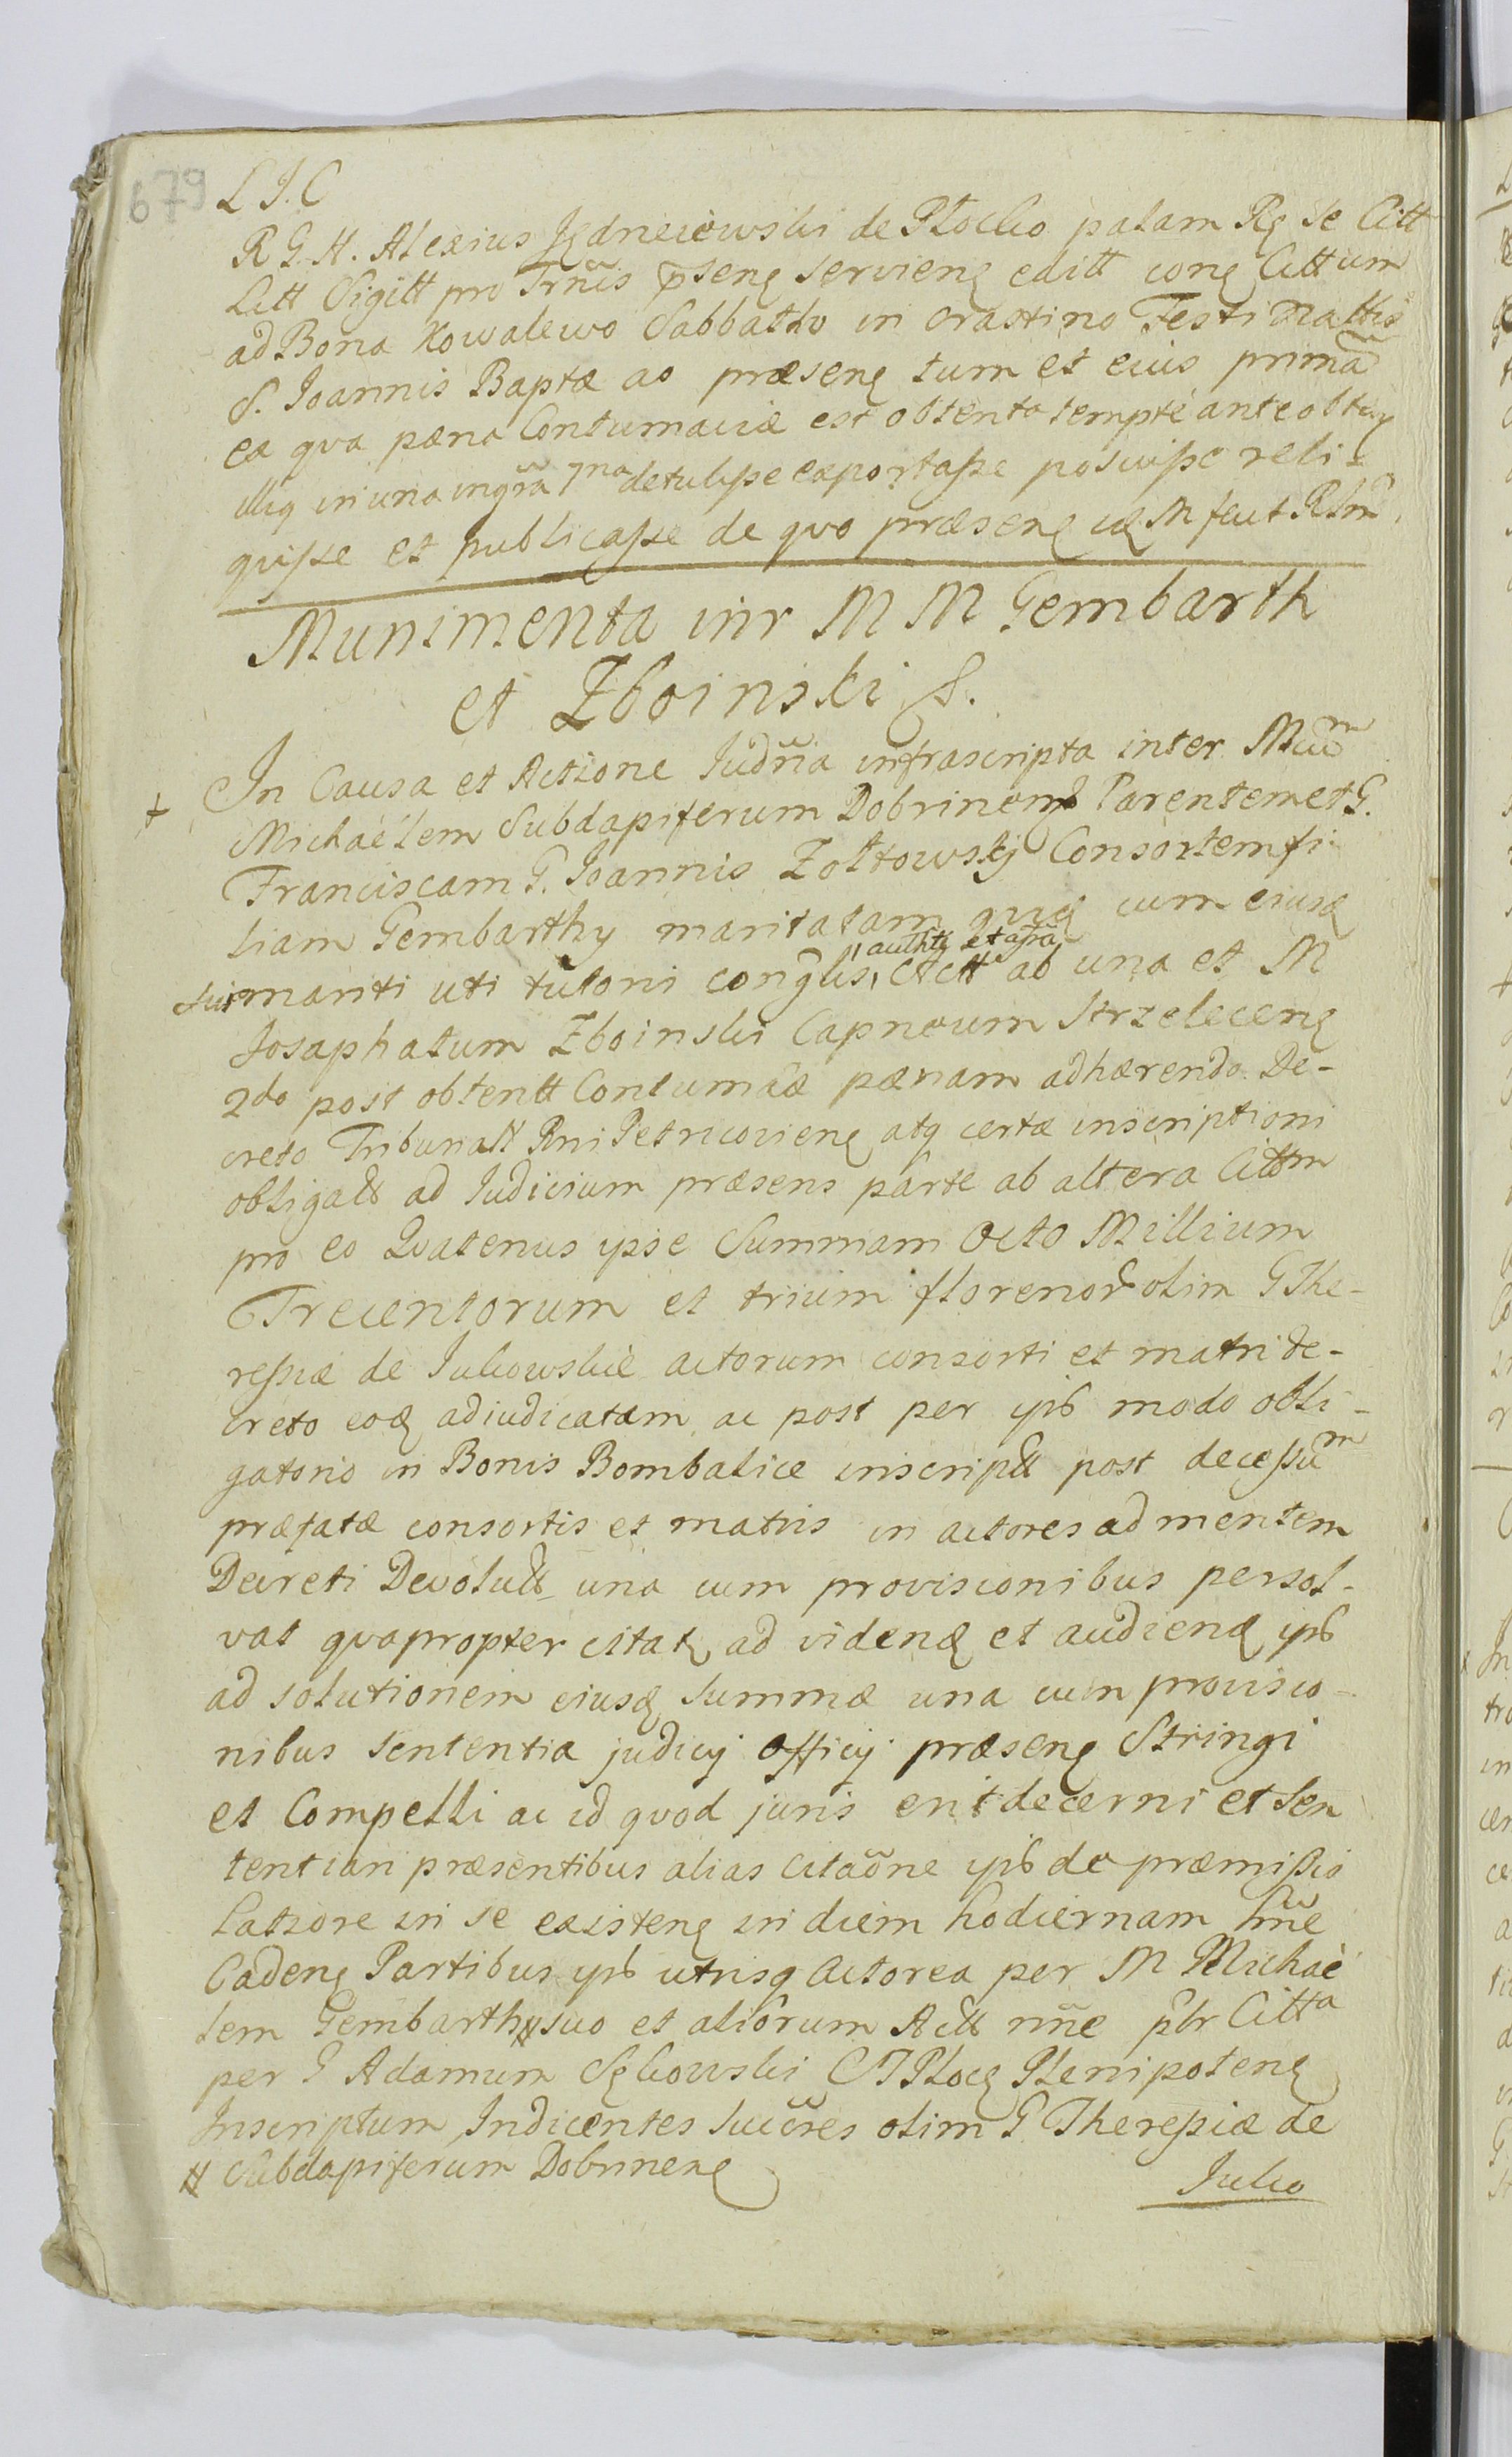 679
L J. C
R G. H. Alexius Jędrzeiowski de Plocko palam Rg se Citt
Litt Sigilt pro Trnis pseng servieng editt cong Cittum
ad Bona Kowalewo Sabbatho in crastino Festi Nattis
S. Joannis Baptæ ao præseng tum et eius prima
ea qva pæna Contumaciæ est obtenta tempre ante obteng
illiq in una ingra 7ma detulisse exportasse posuisse reli-
quisse et publicasse de qvo præseng
Munimenta intr M M Gembarth
et Zboinski S.
+ In Causa et Actione Judria infrascripta inter Mcum
Michaëlem Subdapiferum Dobrineng Parentem et G.
Franciscam G. Joannis Zołtowskj Consortem fi-
liam Gembarthy maritatam quæ cum eiusd
authte et assa
sui mariti uti tutoris conglis, Actt ab una et M
Josaphatum Zboinski Capneum Strzeleceng
2do post obtentt Contumaciæ pænam adhærendo De-
creto Tribunalt Rni Petricovieng atq certæ inscriptioni
obligatt ad Judicium præsens parte ab altera Cittm
pro eo Qvatenus ipse Summam Octo Millium
Trecentorum et trium florenor olim G The-
ressiæ de Jukowskie actorum consorti et matri de-
creto eod adiudicatam ac post per ips modo obli-
gatorio in Bonis Bombalice inscriptt post decessum
præfatæ consortis et matris in actores ad mentem
Decreti Devolutt una cum provisionibus persol-
vat qvapropter citatg ad videnđ et audienđ ips
ad solutionem eiusđ summæ una cum provisio-
nibus sententia judicij officij præseng Stringi
et Compelli ac id qvod juris erit decerni et Sen
tentiari præsentibus alias citaone ips de præmissis
Latiore in se existeng in diem hodiernam lime
Cadeng Partibus ips utrisq Actorea per M Michaë
lem Gembarth # suo et aliorum Actt nne pbr Citta
per G Adamum Sękowski CTPlocg Plenipoteng
Inscriptum Indicentes succres olim G Theressiæ de
# Subdapiferum Dobrineng
Juko